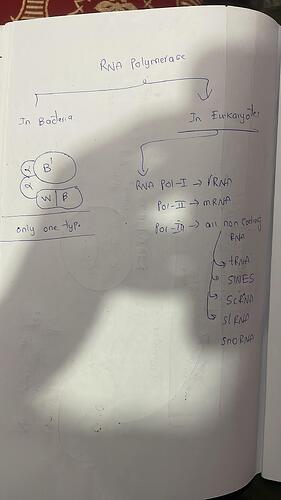 RNA Polymerase
In Bacteria
In Eukaryotes
B'
α
α
W B
only one type.
RNA Pol-I → rRNA
Pol-II → mRNA
Pol-III → all non coding
RNA
tRNA
SINES
ScRNA
SLRNA
SnoRNA